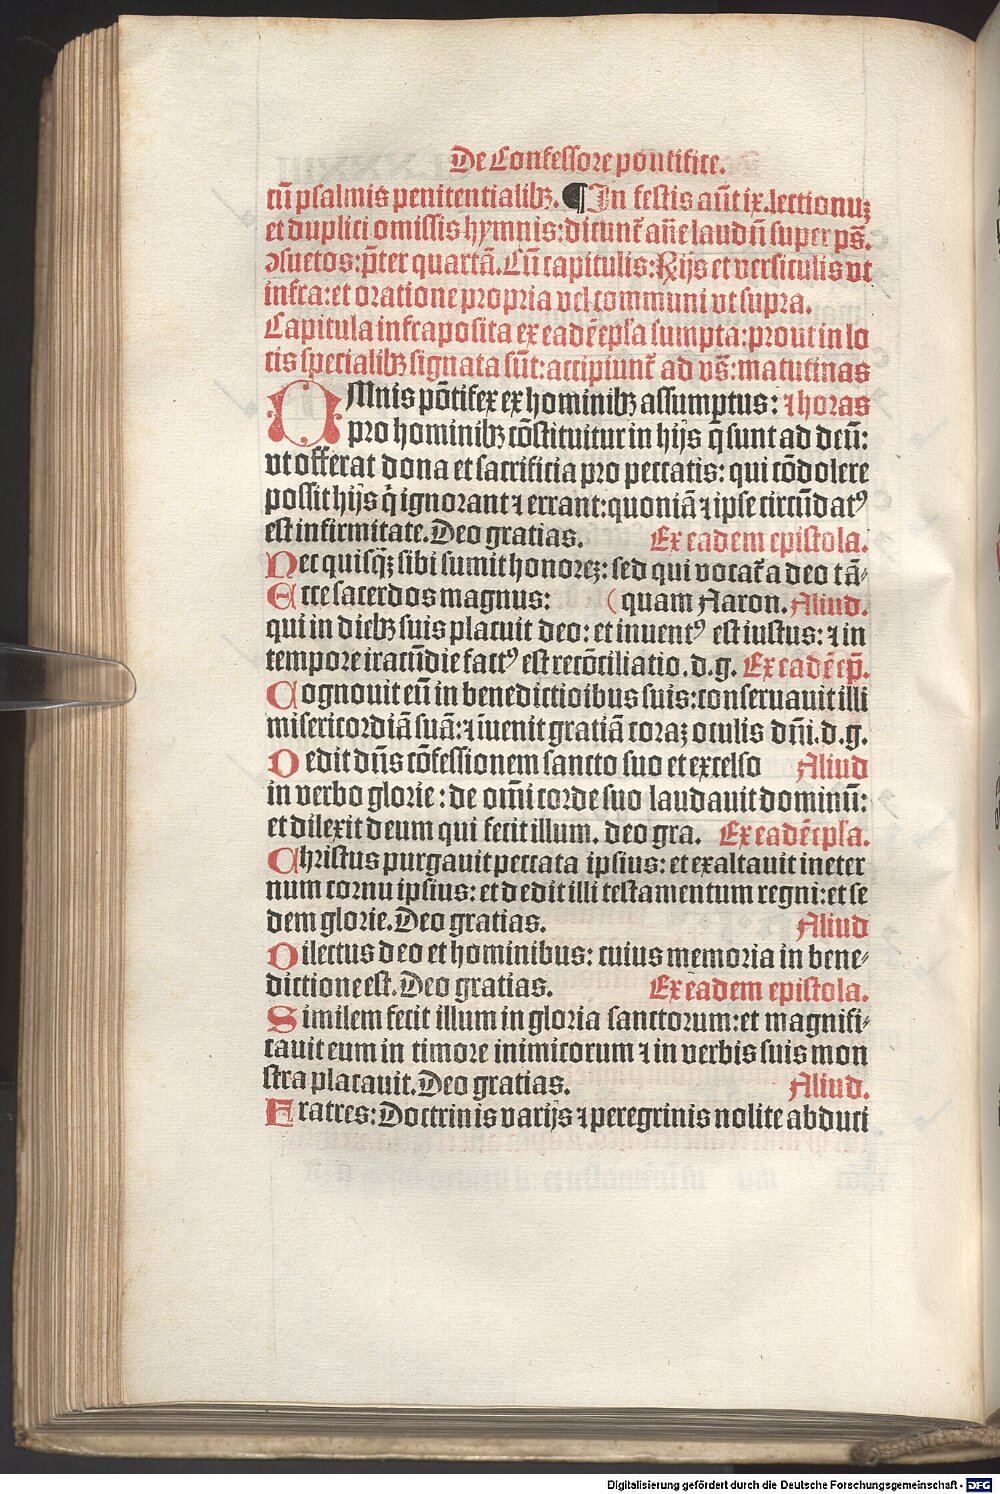 De Confessore pontifice.
cū psalmis penitentialibꝫ. ¶ In festis aūt ix. lectionuꝫ
et duplici omissis hymnis: dicunt᷑ an̄e laudū super ps̄.
ↄsuetos: p̄ter quartā. Cū capitulis: Rijs et versiculis vt
infra: et oratione propria vel communi vt supra.
Capitula infraposita ex eadē ep̄la sumpta: prout in lo
cis specialibꝫ signata sūt: accipiunt᷑ ad vs̄: matutinas
OMnis pōtifex ex hominibꝫ assumptus: ⁊ horas
pro hominibꝫ cōstituitur in hijs q̄ sunt ad deū:
vt offerat dona et sacrificia pro peccatis: qui cōdolere
possit hijs q̇ ignorant ⁊ errant: quoniā ⁊ ipse circūdatꝰ
est infirmitate. Deo gratias. Ex eadem epistola.
Nec quisq̄ꝫ sibi sumit honoreꝫ: sed qui vocat᷑ a deo tā-
Ecce sacerdos magnus: ( quam Aaron. Aliud.
qui in diebꝫ suis placuit deo: et inuentꝰ est iustus: ⁊ in
tempore iracūdie factꝰ est recōciliatio. d. g. Ex eadē ep̄.
Cognouit eū in benedictioībus suis: conseruauit illi
misericordiā suā: ⁊ īuenit gratiā coraꝫ oculis dn̄i. d. g.
Dedit dn̄s cōfessionem sancto suo et excelso Aliud
in verbo glorie: de om̄i corde suo laudauit dominū:
et dilexit deum qui fecit illum. deo gra. Ex eadē ep̄la.
Christus purgauit peccata ipsius: et exaltauit in eter
num cornu ipsius: et dedit illi testamentum regni: et se
dem glorie. Deo gratias. Aliud
Dilectus deo et hominibus: cuius memoria in bene-
dictione est. Deo gratias. Ex eadem epistola.
Similem fecit illum in gloria sanctorum: et magnifi-
cauit eum in timore inimicorum ⁊ in verbis suis mon
stra placauit. Deo gratias. Aliud.
Fratres: Doctrinis varijs ⁊ peregrinis nolite abduci
Digitalisierung gefördert durch die Deutsche Forschungsgemeinschaft - DFG